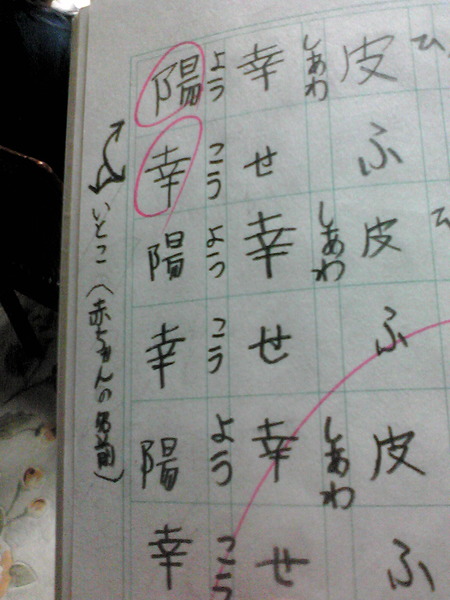 皮ふ皮ふ皮ふ
しあわ しあわ しあわ
幸せ幸せ幸せ
ようこうようこうようこう
陽幸陽幸陽幸
いとこ(赤ちゃんの名前)